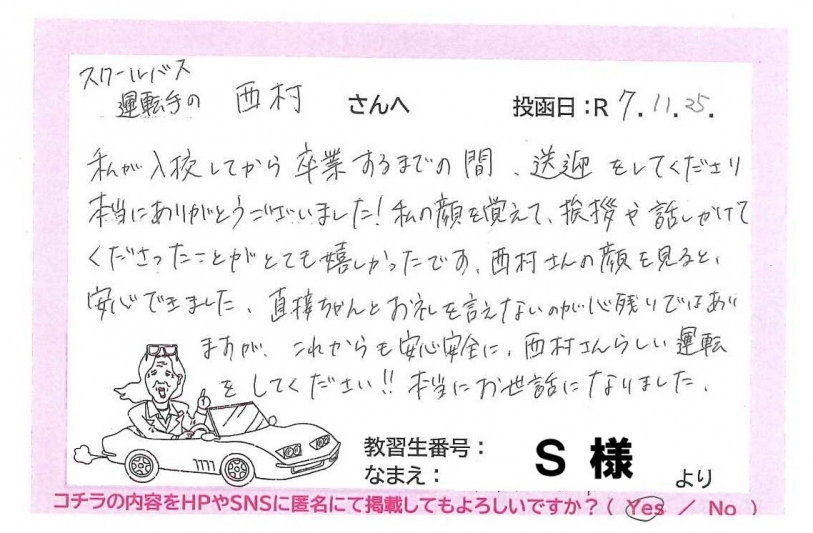 スクールバス
運転手の 西村 さんへ 投函日:R 7.11.25.
私が入校してから卒業するまでの間、送迎をしてくださり
本当にありがとうございました!私の顔を覚えて、挨拶や話しかけて
くださったことがとても嬉しかったです。西村さんの顔を見ると、
安心できました。直接ちゃんとお礼を言えないのが心残りではあり
ますが、これからも安心安全に、西村さんらしい運転
をしてください!!本当にお世話になりました。
教習生番号:
なまえ: S 様 より
コチラの内容をHPやSNSに匿名にて掲載してもよろしいですか?( Yes / No )